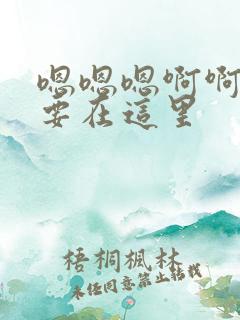 嗯嗯嗯啊啊
要在這里
梧桐楓林
未任同意禁止转载